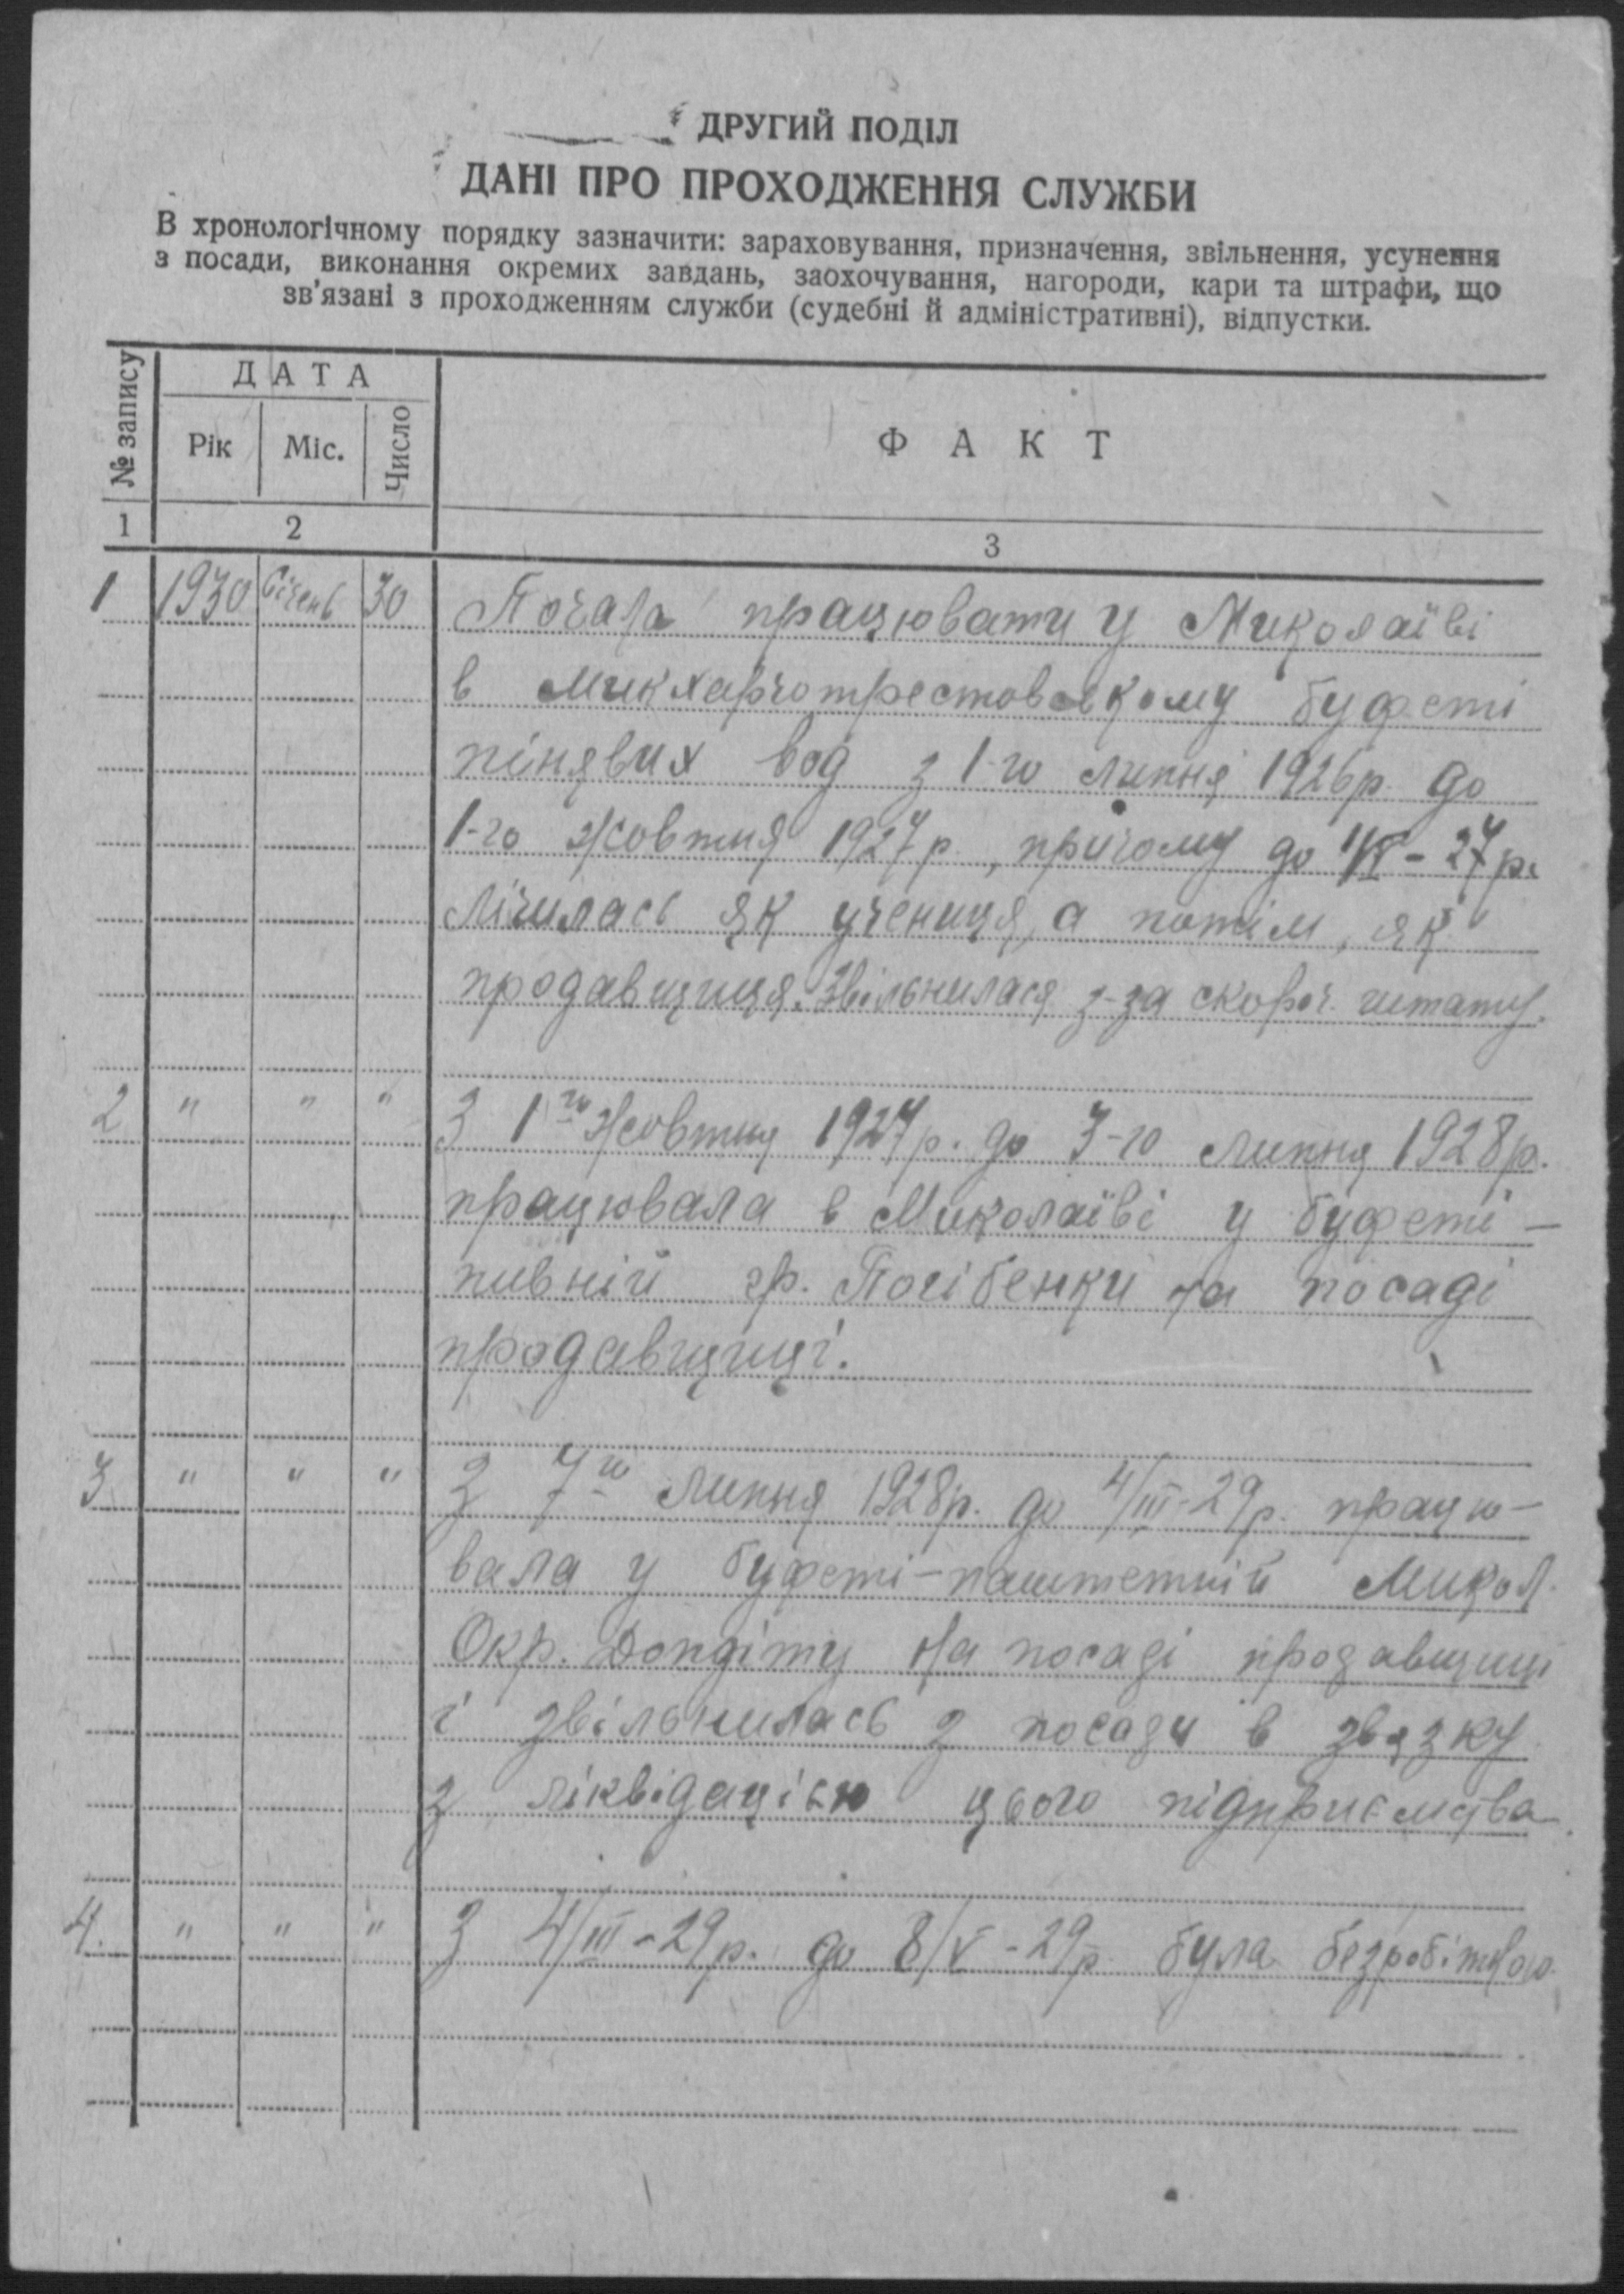 ДРУГИЙ ПОДІЛ
ДАНІ ПРО ПРОХОДЖЕННЯ СЛУЖБИ
В хронологічному порядку зазначити: зараховування, призначення, звільнення, усунення
з посади, виконання окремих завдань, заохочування, нагороди, кари та штрафи, що
зв'язані з проходженням служби (судебні й адміністративні), відпустки.
№ запису
ДАТА
Рік Міс. Число
ФАКТ
1 2 3
1 1930 Січень 30 Почала працювати у Миколаїві
в микхарчотрестовському буфеті
пінявих вод з 1-го липня 1926р. до
1-го жовтня 1927р., причому до 1/VI-27р.
лічилась як учениця, а потім, як
продавщиця. Звільнилася з-за скороч. штату.
2 " " " З 1го жовтня 1927р. до 7-го липня 1928р.
працювала в Миколаїві у буфеті-
пивній гр. Погібенки на посаді
продавщиці.
3 " " " З 7го липня 1928р. до 4/III-29р. працю-
вала у буфеті-паштетній Микол.
Окр. Допдіту на посаді продавщиці
і звільнилась з посади в звязку
з ліквідацією цього підприємства.
4. " " " З 4/III-29р. до 8/V-29р. була безробітною.